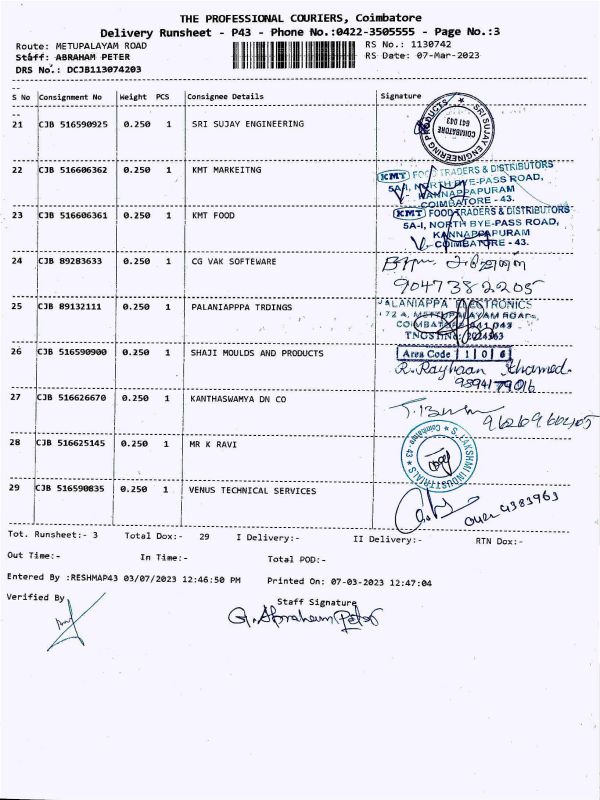 THE PROFESSIONAL COURIERS, Coimbatore
Delivery Runsheet - P43 - Phone No.:0422-3505555 - Page No.:3
Route: METUPALAYAM ROAD RS No.: 1130742
Staff: ABRAHAM PETER RS Date: 07-Mar-2023
DRS No.: DCJB113074203
S No Consignment No Weight PCS Consignee Details Signature
21 CJB 516590925 0.250 1 SRI SUJAY ENGINEERING
SRI SUJAY ENGINEERING PRODUCTS ★
COIMBATORE
641 043
22 CJB 516606362 0.250 1 KMT MARKEITNG
KMT FOOD TRADERS & DISTRIBUTORS
5A-I, NORTH BYE-PASS ROAD,
KANNAPPAPURAM
COIMBATORE - 43.
23 CJB 516606361 0.250 1 KMT FOOD
KMT FOOD TRADERS & DISTRIBUTORS
5A-I, NORTH BYE-PASS ROAD,
KANNAPPAPURAM
COIMBATORE - 43.
24 CJB 89283633 0.250 1 CG VAK SOFTEWARE
9047382205
25 CJB 89132111 0.250 1 PALANIAPPPA TRDINGS
PALANIAPPA ELECTRONICS
172 A, METTUPALAYAM ROAD,
COIMBATORE-641 043
26 CJB 516590900 0.250 1 SHAJI MOULDS AND PRODUCTS
Area Code 1 0 6
R. Rayhaan Khamed.
9894179016
27 CJB 516626670 0.250 1 KANTHASWAMYA DN CO
28 CJB 516625145 0.250 1 MR K RAVI
S. LAKSHMI INDUSTRIALS ★ Coimbatore - 43 ★
29 CJB 516590835 0.250 1 VENUS TECHNICAL SERVICES
0422 4383963
Tot. Runsheet:- 3 Total Dox:- 29 I Delivery:- II Delivery:- RTN Dox:-
Out Time:- In Time:- Total POD:-
Entered By :RESHMAP43 03/07/2023 12:46:50 PM Printed On: 07-03-2023 12:47:04
Verified By Staff Signature
G. Abraham Peter